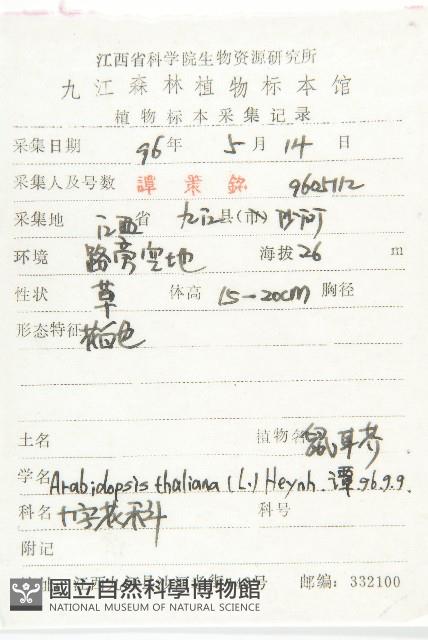 江西省科学院生物资源研究所
九江森林植物标本馆
植物标本采集记录
采集日期 96年 5月 14日
采集人及号数 譚策銘 9605112
采集地 江西省 九江县(市) 沙河
环境 路旁空地 海拔 26 m
性状 草 体高 15-20cm 胸径
形态特征 花白色
土名 植物名 鼠耳芥.
学名 Arabidopsis thaliana (L.) Heynh. 譚 96.9.9.
科名 十字花科 科号
附记
江西九江县沙河 号 邮编: 332100
國立自然科學博物館
NATIONAL MUSEUM OF NATURAL SCIENCE